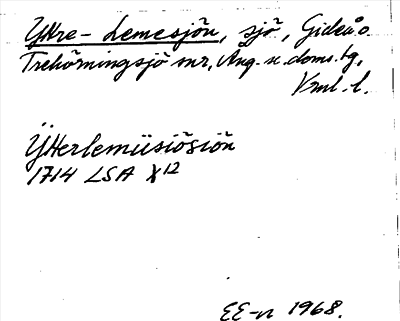 Yttre-Lemesjön, sjö, Gideå o.
Trehörningsjö snr, Ång. n. doms. tg,
Vnl. l.
Ÿtterlemiisiösiön
1714 LSA X12
EE-n 1968.